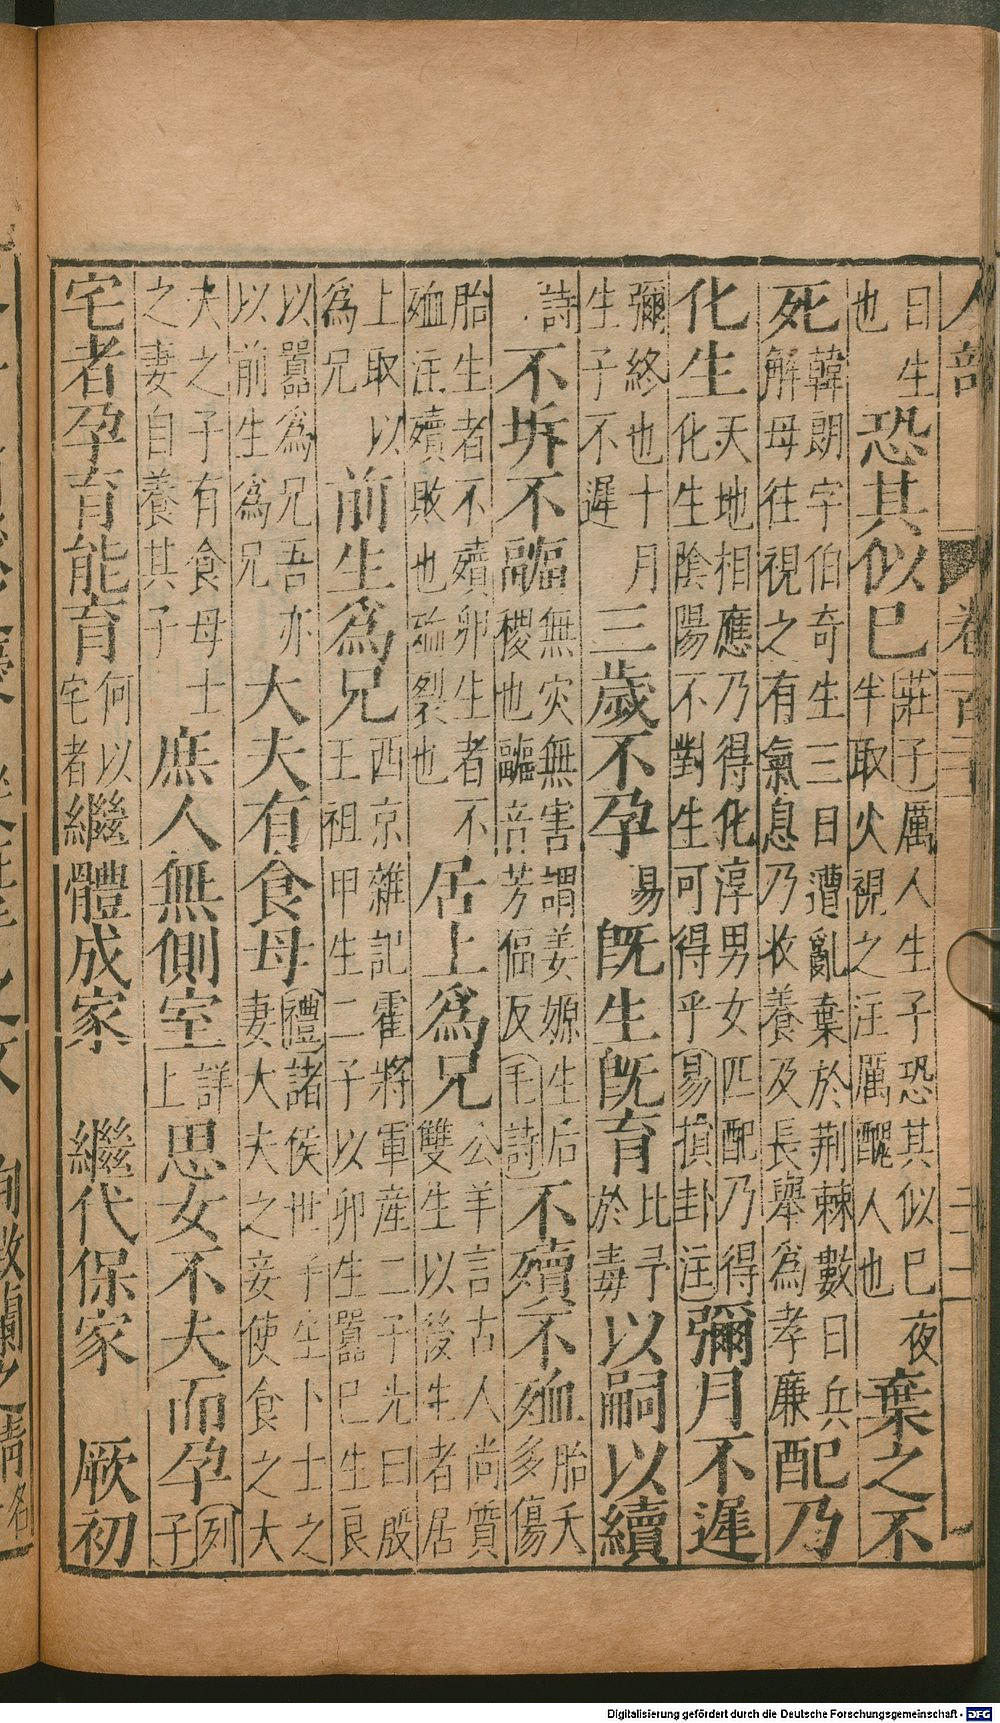 人部 卷百三
日生
也
恐其似已
莊子厲人生子恐其似已夜
半取火視之注厲醜人也
棄之不
死
韓朗字伯奇生三日遭亂棄於荆棘數日兵
解母往視之有氣息乃收養及長舉爲孝廉
配乃
化生
天地相應乃得化淳男女匹配乃得
化生陰陽不對生可得乎易損卦注
彌月不遲
彌終也十月
生子不遲
三歲不孕
易
既生既育
比予
於毒
以嗣以續
詩
不坼不疈
無灾無害謂姜嫄生后
稷也疈音芳偪反毛詩
不殰不殈
胎夭
多傷
胎生者不殰卵生者不
殈注殰敗也殈裂也
居上爲兄
公羊言古人尚質
雙生以後生者居
上取以
爲兄
前生爲兄
西京雜記霍將軍産二子光曰殷
王祖甲生二子以卯生嚚巳生良
以嚚爲兄吾亦
以前生爲兄
大夫有食母
禮諸侯世子生卜士之
妻大夫之妾使食之大
夫之子有食母士
之妻自養其子
庶人無側室
詳
上
思女不夫而孕
列
子
宅者孕育能育
何以
宅者
繼體成家 繼代保家 厥初
Digitalisierung gefördert durch die Deutsche Forschungsgemeinschaft - DFG